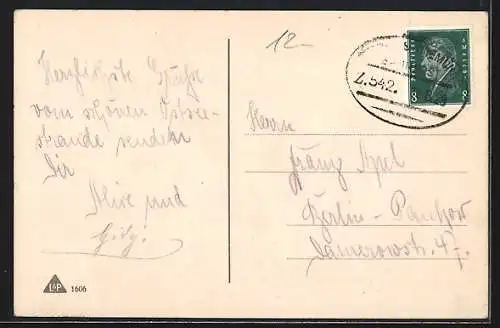 Herzlichste Grüße
vom schönen Ostsee-
strande senden
Dir
Alice und
12-
Z.542.
DEUTSCHES REICH
8 8
Herrn
Franz Apel
Berlin-Pankow
Damerowstr. 47.
L&P 1606